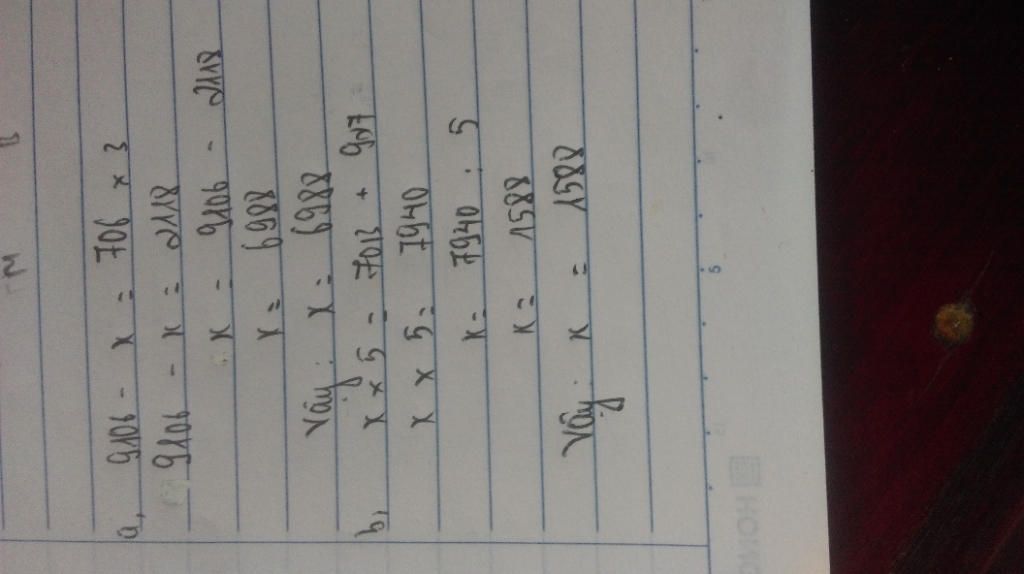 a, 9106 - x = 706 x 3
9106 - x = 2118
x = 9106 - 2118
x = 6988
Vậy: x = 6988
b, x x 5 = 7013 + 927
x x 5 = 7940
x = 7940 : 5
x = 1588
Vậy: x = 1588
5